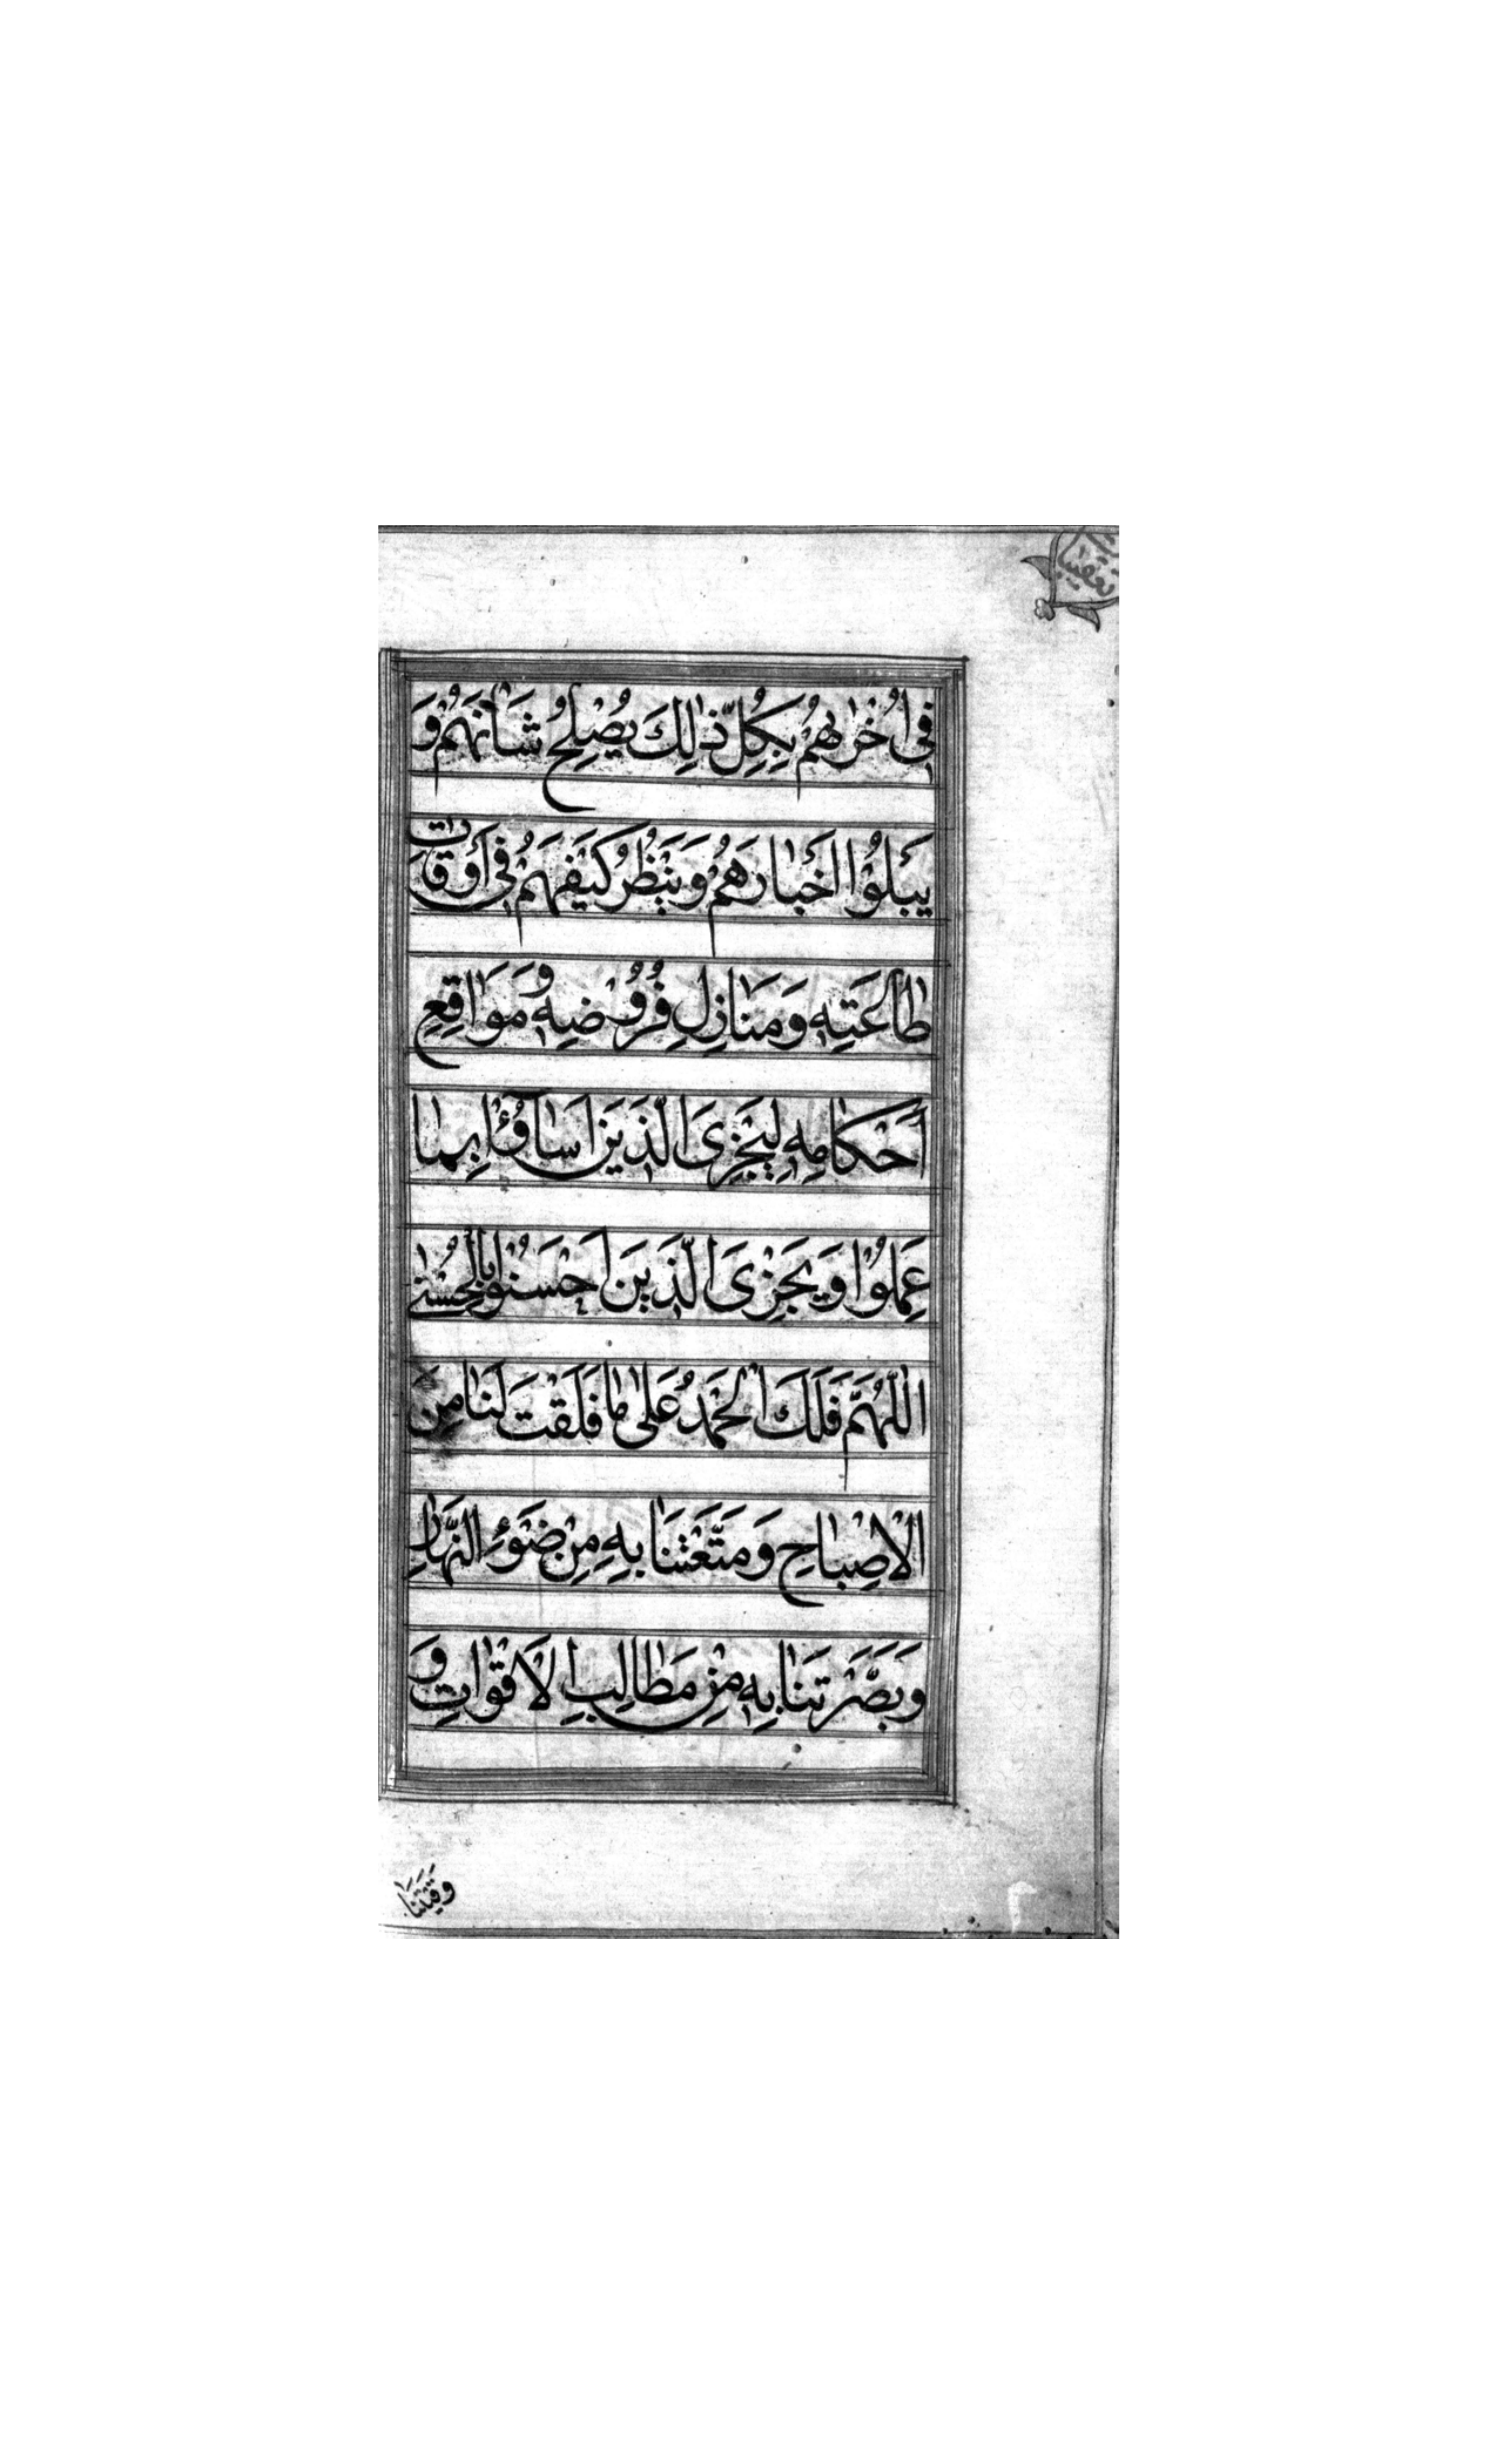 تعقیبات
فِی اُخْرٰیهُمْ بِکُلِّ ذٰلِكَ یُصْلِحُ شَاْنَهُمْ وَ
یَبْلُوْا اَخْبارَهُمْ وَیَنْظُرُ کَیْفَ هُمْ فِی اَوْقاتِ
طاعَتِهِ وَمَنازِلِ فُرُوْضِهِ وَمَوَاقِعِ
اَحْکامِهِ لِیَجْزِیَ الَّذِیْنَ اَسٰآؤُا بِمٰا
عَمِلُوْا وَیَجْزِیَ الَّذِیْنَ اَحْسَنُوْا بِالْحُسْنٰی
اَللّٰهُمَّ فَلَكَ الْحَمْدُ عَلٰی مٰا فَلَقْتَ لَنٰا مِنَ
الْاِصْبٰاحِ وَمَتَّعْتَنٰا بِهِ مِنْ ضَوْءِ النَّهٰارِ
وَبَصَّرْتَنٰا بِهِ مِنْ مَطٰالِبِ الْاَقْوٰاتِ وَ
وَقَیْتَنٰا